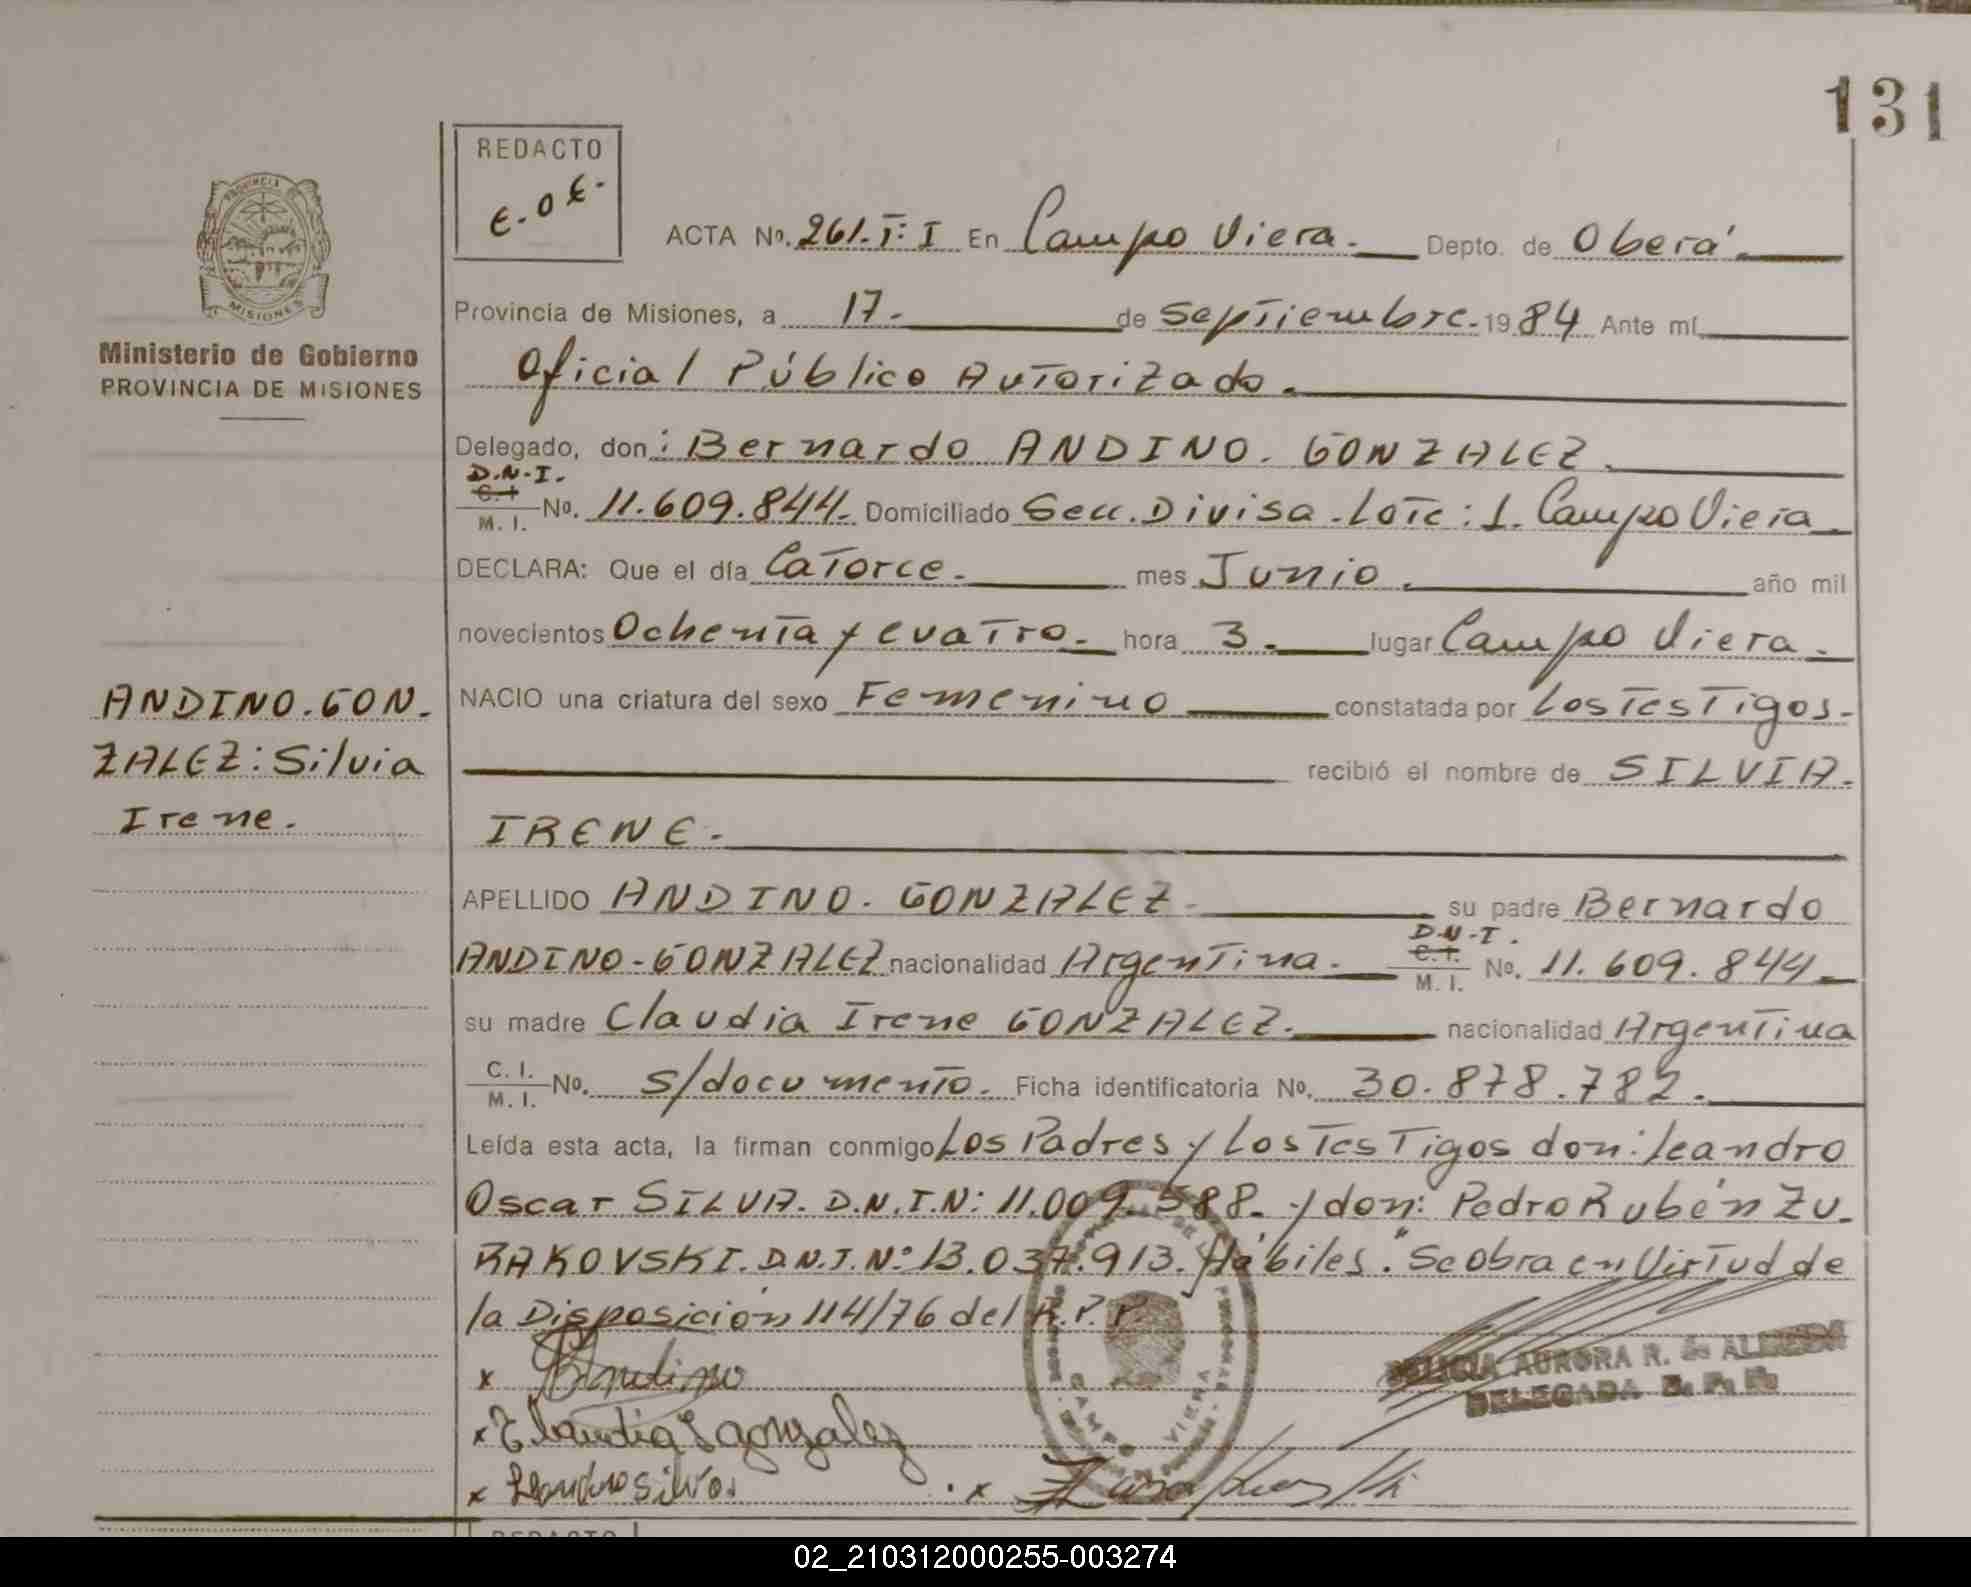 131
REDACTO
E.O.E.
PROVINCIA
MISIONES
Ministerio de Gobierno
PROVINCIA DE MISIONES
ACTA Nº. 261.T:I En Campo Viera. Depto. de Oberá.
Provincia de Misiones, a 17. de Septiembre. 1984 Ante mí
Oficial Público Autorizado.
Delegado, don: Bernardo ANDINO. GONZALEZ.
D.N.I.
C.I. / M. I. No. 11.609.844. Domiciliado Secc. Divisa. Lote: 1. Campo Viera
DECLARA: Que el día Catorce. mes Junio. año mil
novecientos Ochenta y cuatro. hora 3. lugar Campo Viera.
ANDINO.GON.
ZALEZ: Silvia
Irene.
NACIO una criatura del sexo Femenino constatada por Los Testigos.
recibió el nombre de SILVIA.
IRENE.
APELLIDO ANDINO. GONZALEZ. su padre Bernardo
D.N.I.
ANDINO-GONZALEZ nacionalidad Argentina. C.I. / M. I. No. 11.609.844.
su madre Claudia Irene GONZALEZ. nacionalidad Argentina
C. I. / M. I. No. s/documento. Ficha identificatoria No. 30.878.782.
Leída esta acta, la firman conmigo Los Padres y Los Testigos don: Leandro
Oscar SILVA. D.N.I.N: 11.009.588. y don: Pedro Rubén ZU.
RAKOVSKI. D.N.I.Nº 13.037.913. Hábiles. "Se obra en Virtud de
la Disposición 114/76 del R.P.P.
x Bandino
x Claudia I gonzalez
x Leandro Silva. x
CAMPO VIERA
DELICIA AURORA R. de ALMEIDA
DELEGADA R. P. P.
REDACTO
02_210312000255-003274